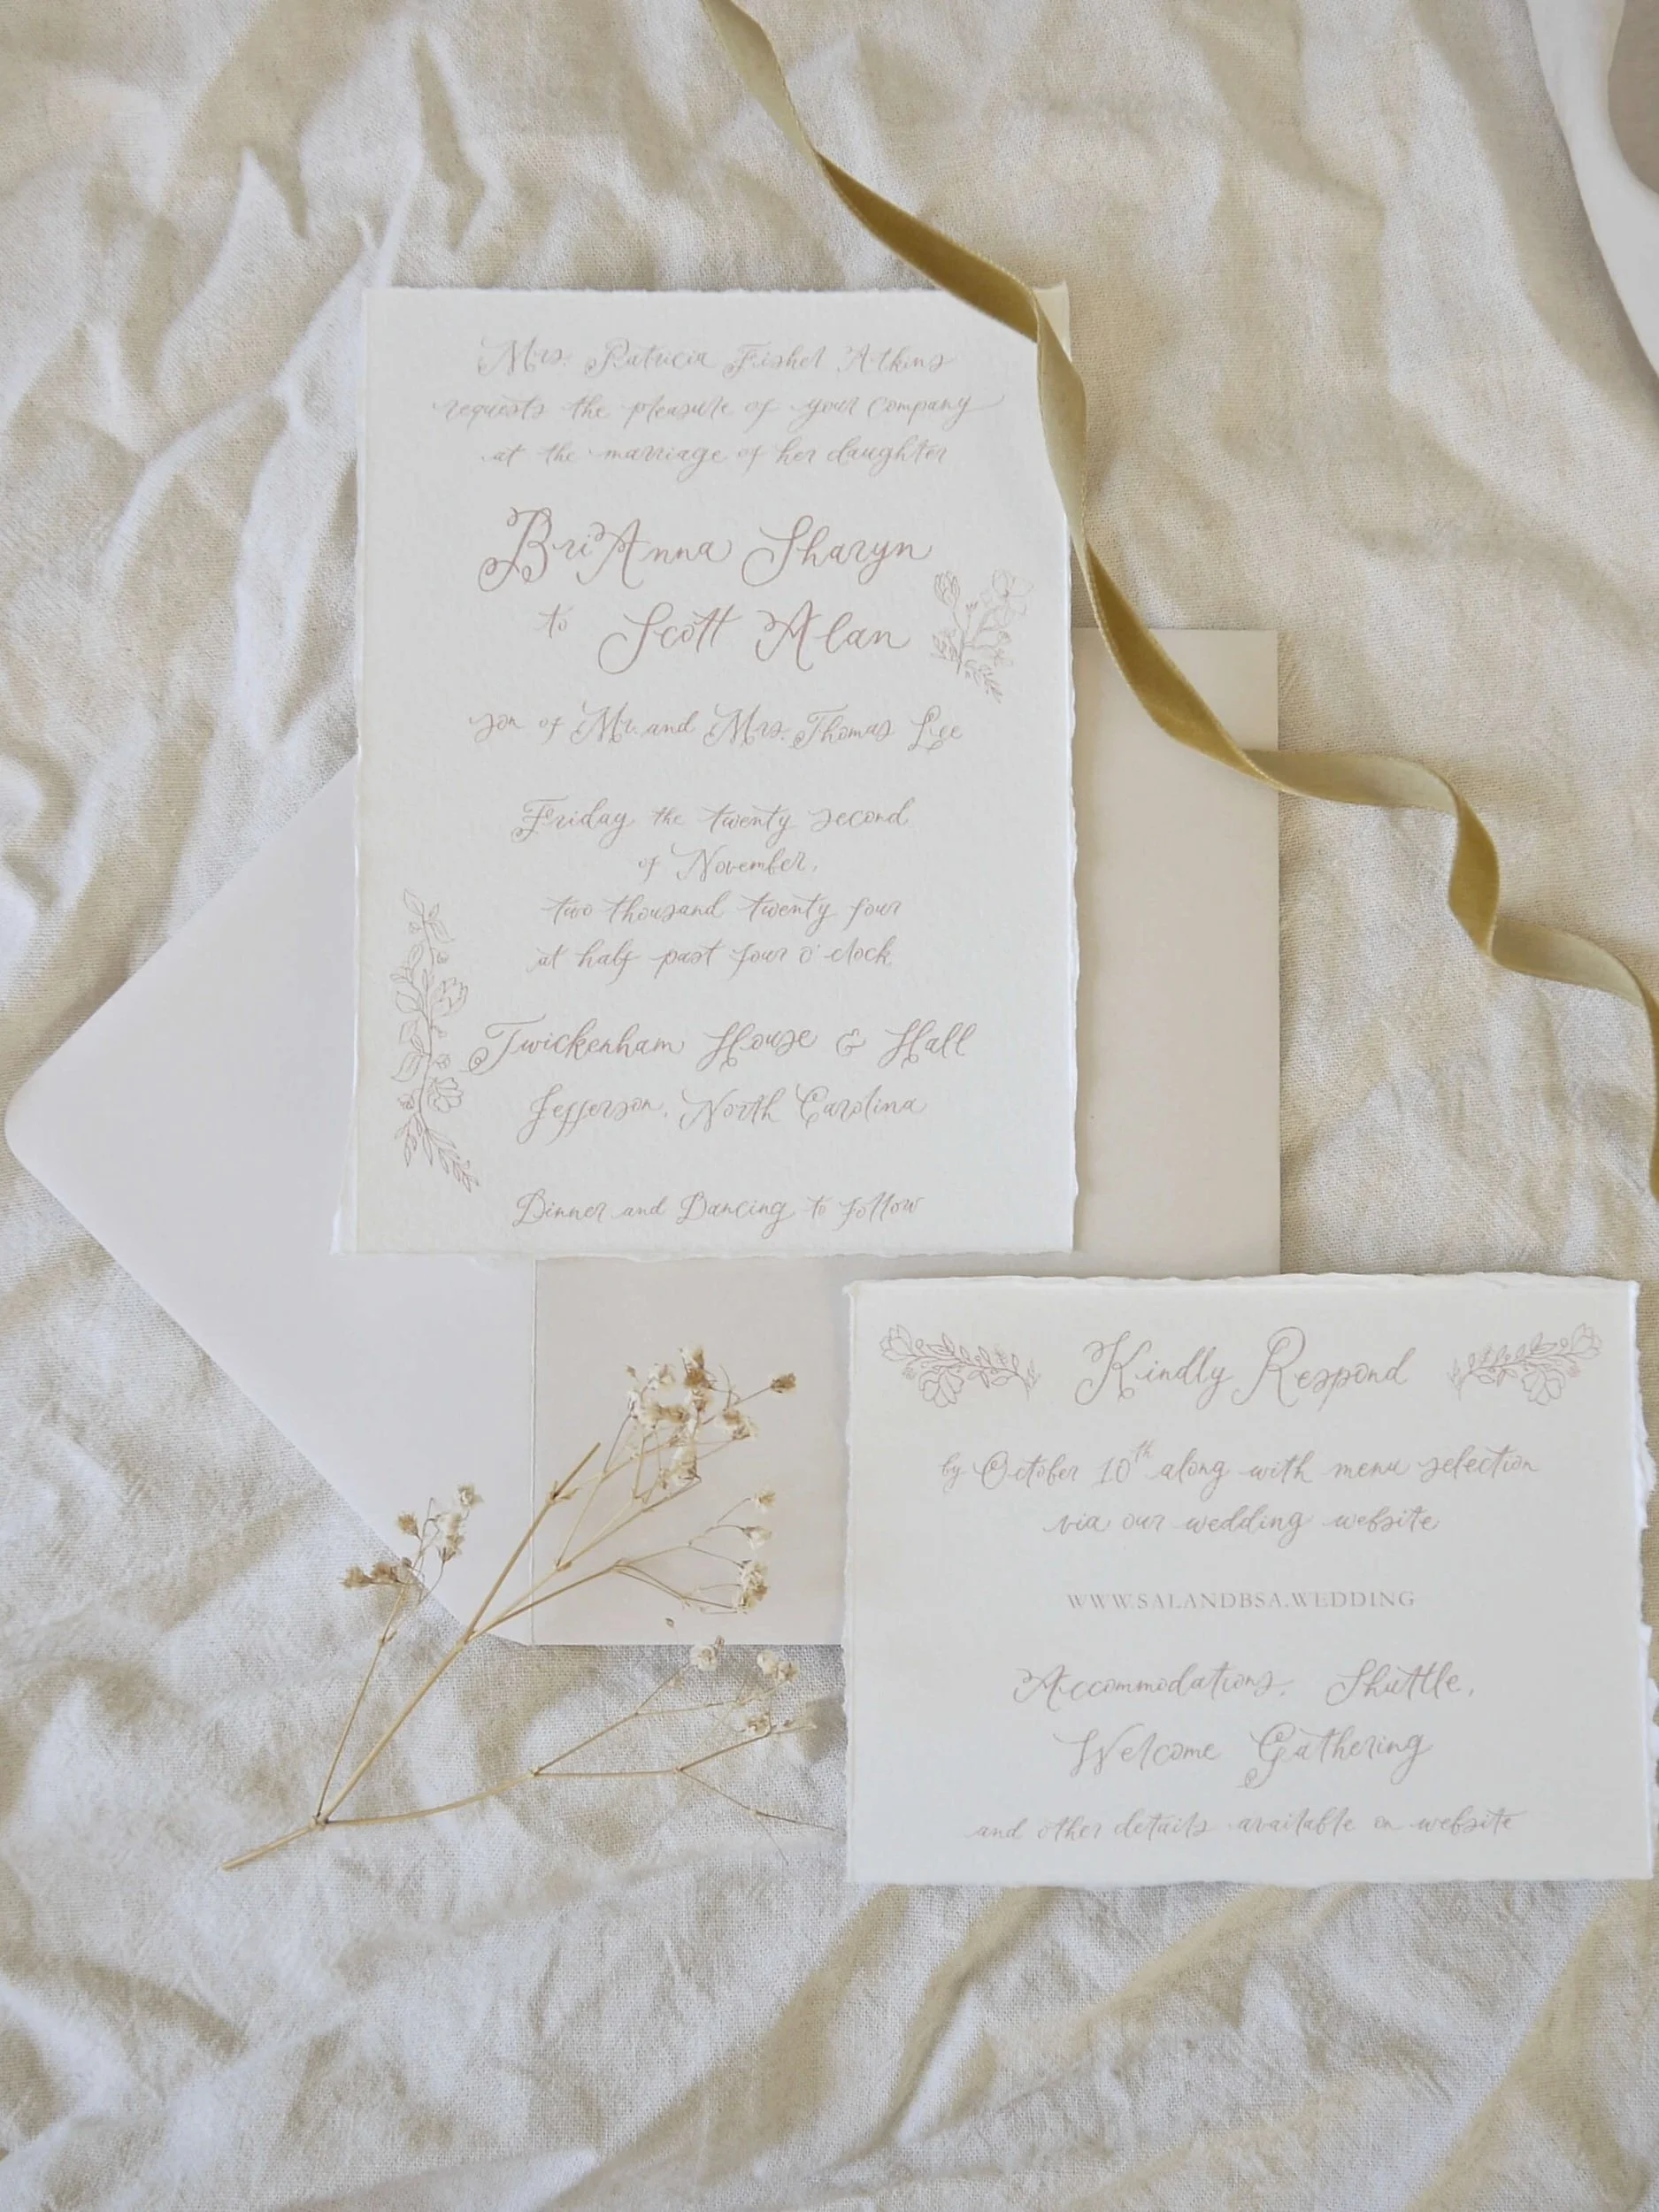 Mrs. Patricia Fishel Atkins
requests the pleasure of your company
at the marriage of her daughter
BriAnna Sharyn
to Scott Alan
son of Mr. and Mrs. Thomas Lee
Friday the twenty second
of November,
two thousand twenty four
at half past four o'clock
Twickenham House & Hall
Jefferson, North Carolina
Dinner and Dancing to follow
Kindly Respond
by October 10th along with menu selection
via our wedding website
WWW.SALANDBSA.WEDDING
Accommodations, Shuttle,
Welcome Gathering
and other details available on website